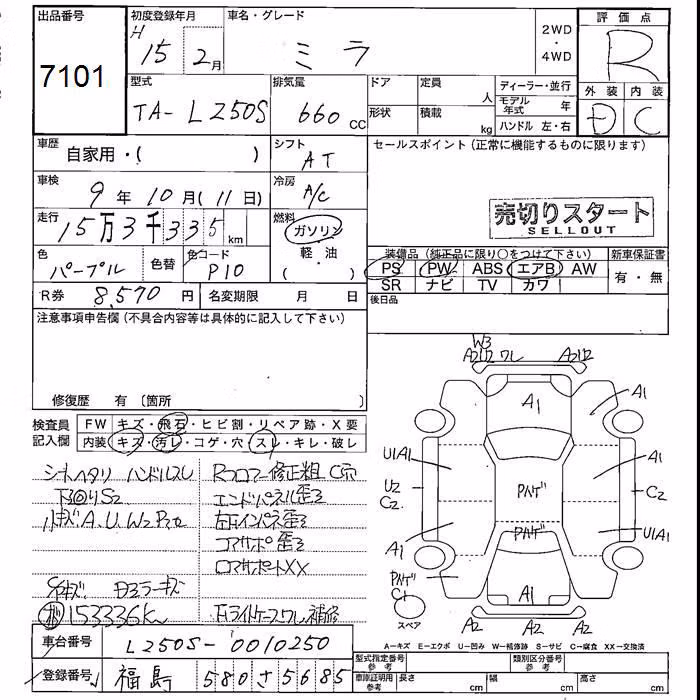 出品番号
7101
初度登録年月
H
15 2月
車名・グレード
ミラ
2WD
・
4WD
評価点
R
外装 内装
D C
型式
TA-L250S
排気量
660 cc
ドア
形状
定員
人
積載
kg
ディーラー・並行
モデル年式 年
ハンドル 左・右
車歴
自家用・( )
シフト
AT
セールスポイント(正常に機能するものに限ります)
車検
9年10月(11日)
冷房
A/C
売切りスタート
SELLOUT
走行
15万3千335km
燃料
ガソリン
・
軽・油
( )
色
パープル
色替
色コード
P10
装備品(純正品に限り○をつけて下さい)
PS PW ABS エアB AW
SR ナビ TV カワ
新車保証書
有・無
R券 8,570円
名変期限 月 日
後日品
注意事項申告欄(不具合内容等は具体的に記入して下さい)
修復歴 有(箇所
検査員
記入欄
FW キズ・飛石・ヒビ割・リペア跡・X要
内装 キズ・汚レ・コゲ・穴・スレ・キレ・破レ
シートヘタリ ハンドルスレ
下回りS2
小キズA.U.W2 P2
153336K
Rコアロアー修正粗 C穴
エンドパネル歪ミ
左下インパネ歪ミ
コアサポ歪ミ
ロアサポートXX
ライトケースワレ補修
W3
A2U2 ワレ
A2U2
A1
A1
U1A1
A1
U2
C2
Pハゲ
C2
Pハゲ
A1
U1A1
Pハゲ
C1
A1
スペア
A2 A2 A2
A-キズ E-エクボ U-凹み W-補修跡 S-サビ C-腐食 XX-交換済
車台番号
L250S-0010250
登録番号
福島 580 さ 5685
型式指定番号
参考
類別区分番号
参考
車庫証明用
参考
長さ cm
幅 cm
高さ cm